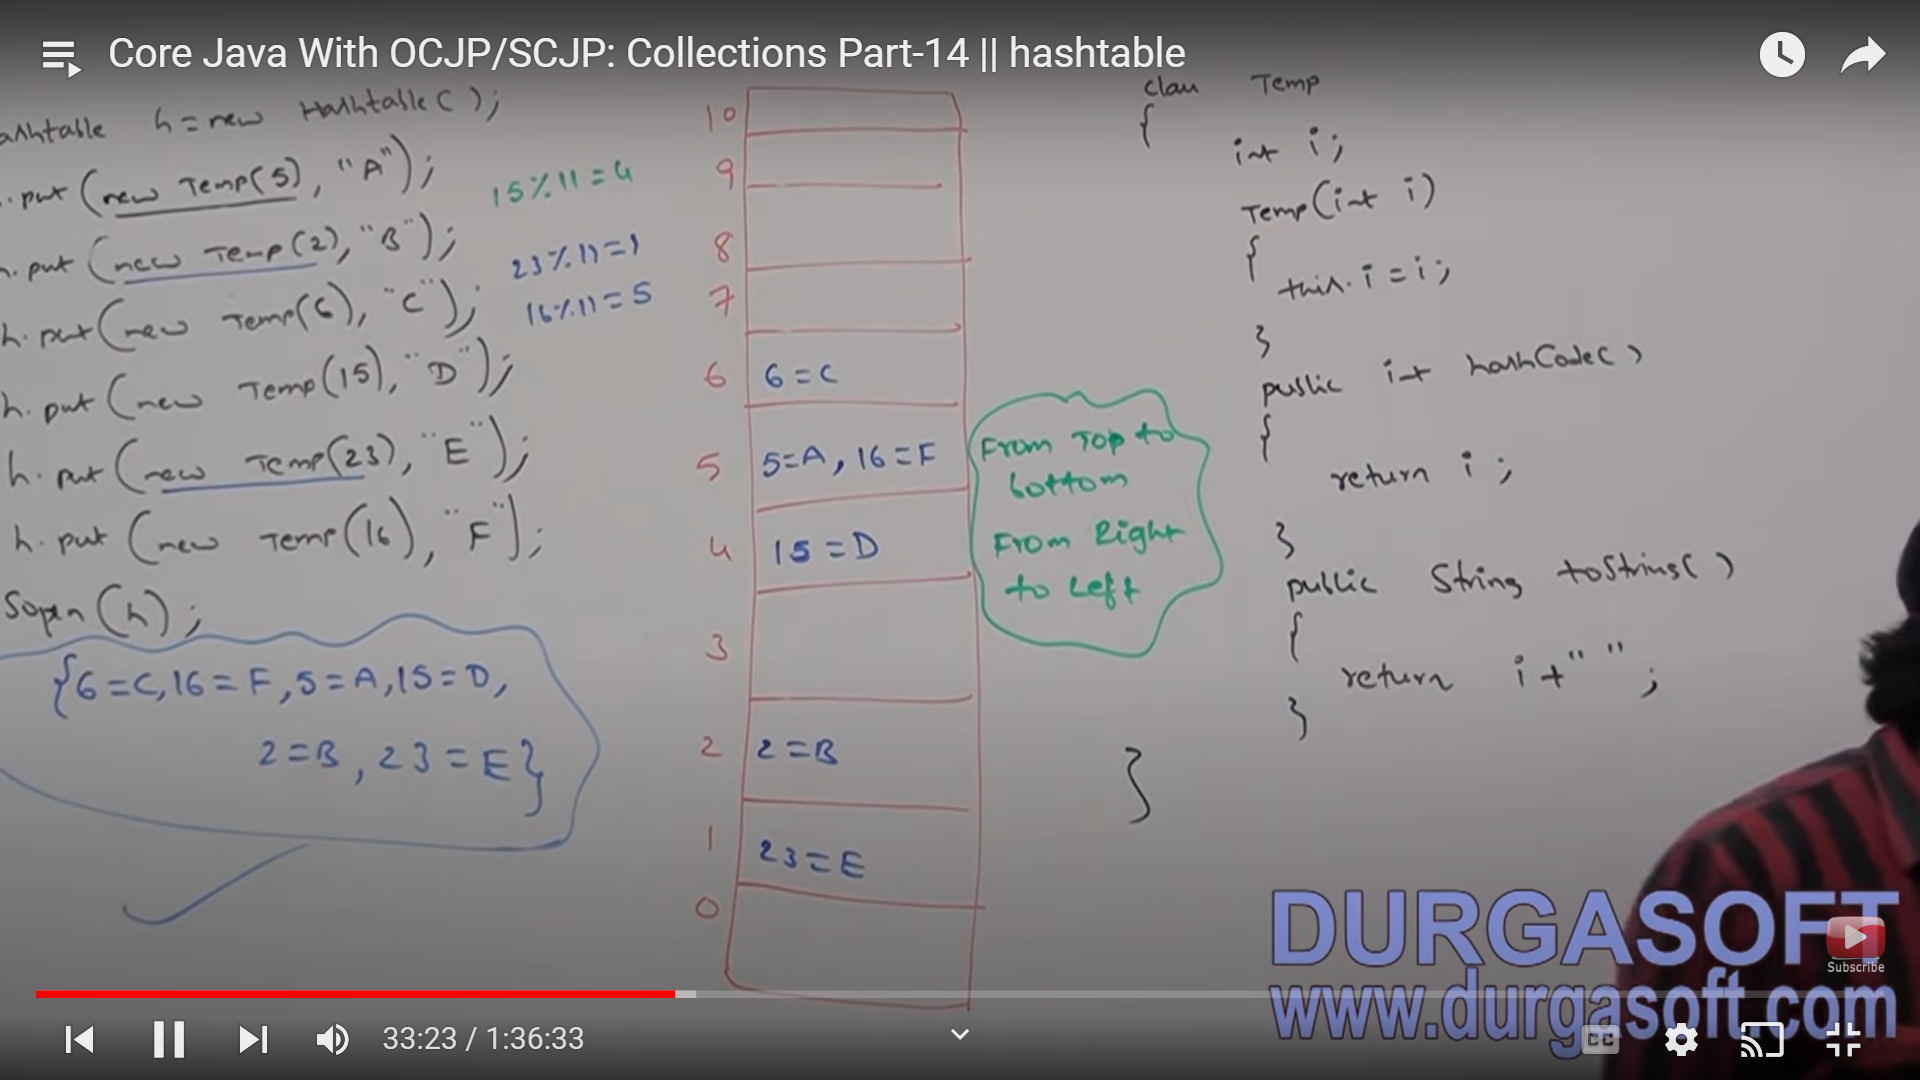 Core Java With OCJP/SCJP: Collections Part-14 || hashtable
ashtable h = new Hashtable( );
.put (new Temp(5), "A");
15%11=4
h.put (new Temp(2), "B");
23%11=1
h.put (new Temp(6), "C");
16%11=5
h.put (new Temp(15), "D");
h.put (new Temp(23), "E");
h.put (new Temp(16), "F");
Sopln(h);
{6=C, 16=F, 5=A, 15=D,
2=B, 23=E}
10
9
8
7
6 6=C
5 5=A, 16=F
4 15=D
3
2 2=B
1 23=E
0
From Top to
bottom
From Right
to Left
class Temp
{
int i;
Temp(int i)
{
this.i=i;
}
public int hashCode( )
{
return i;
}
public String toString( )
{
return i+" ";
}
}
DURGASOFT
www.durgasoft.com
Subscribe
33:23 / 1:36:33
CC